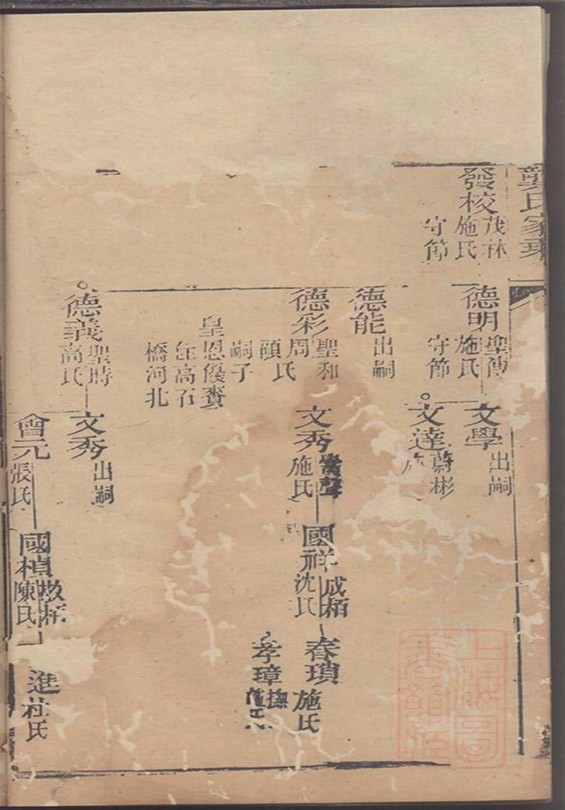 氏家
發校
茂林
施氏
守節
德明
聖傳
施氏
守節
文學
出嗣
文達
蔚彬
德能
出嗣
德彩
聖和
周氏
頋氏
嗣子
文秀
施氏
國祥
成栢
沈氏
春瑣
施氏
孝璋
皇恩優賚
年高石
橋河北
德義
聖時
高氏
文秀
出嗣
會元
張氏
國楨
陳氏
進
杜氏
上海圖